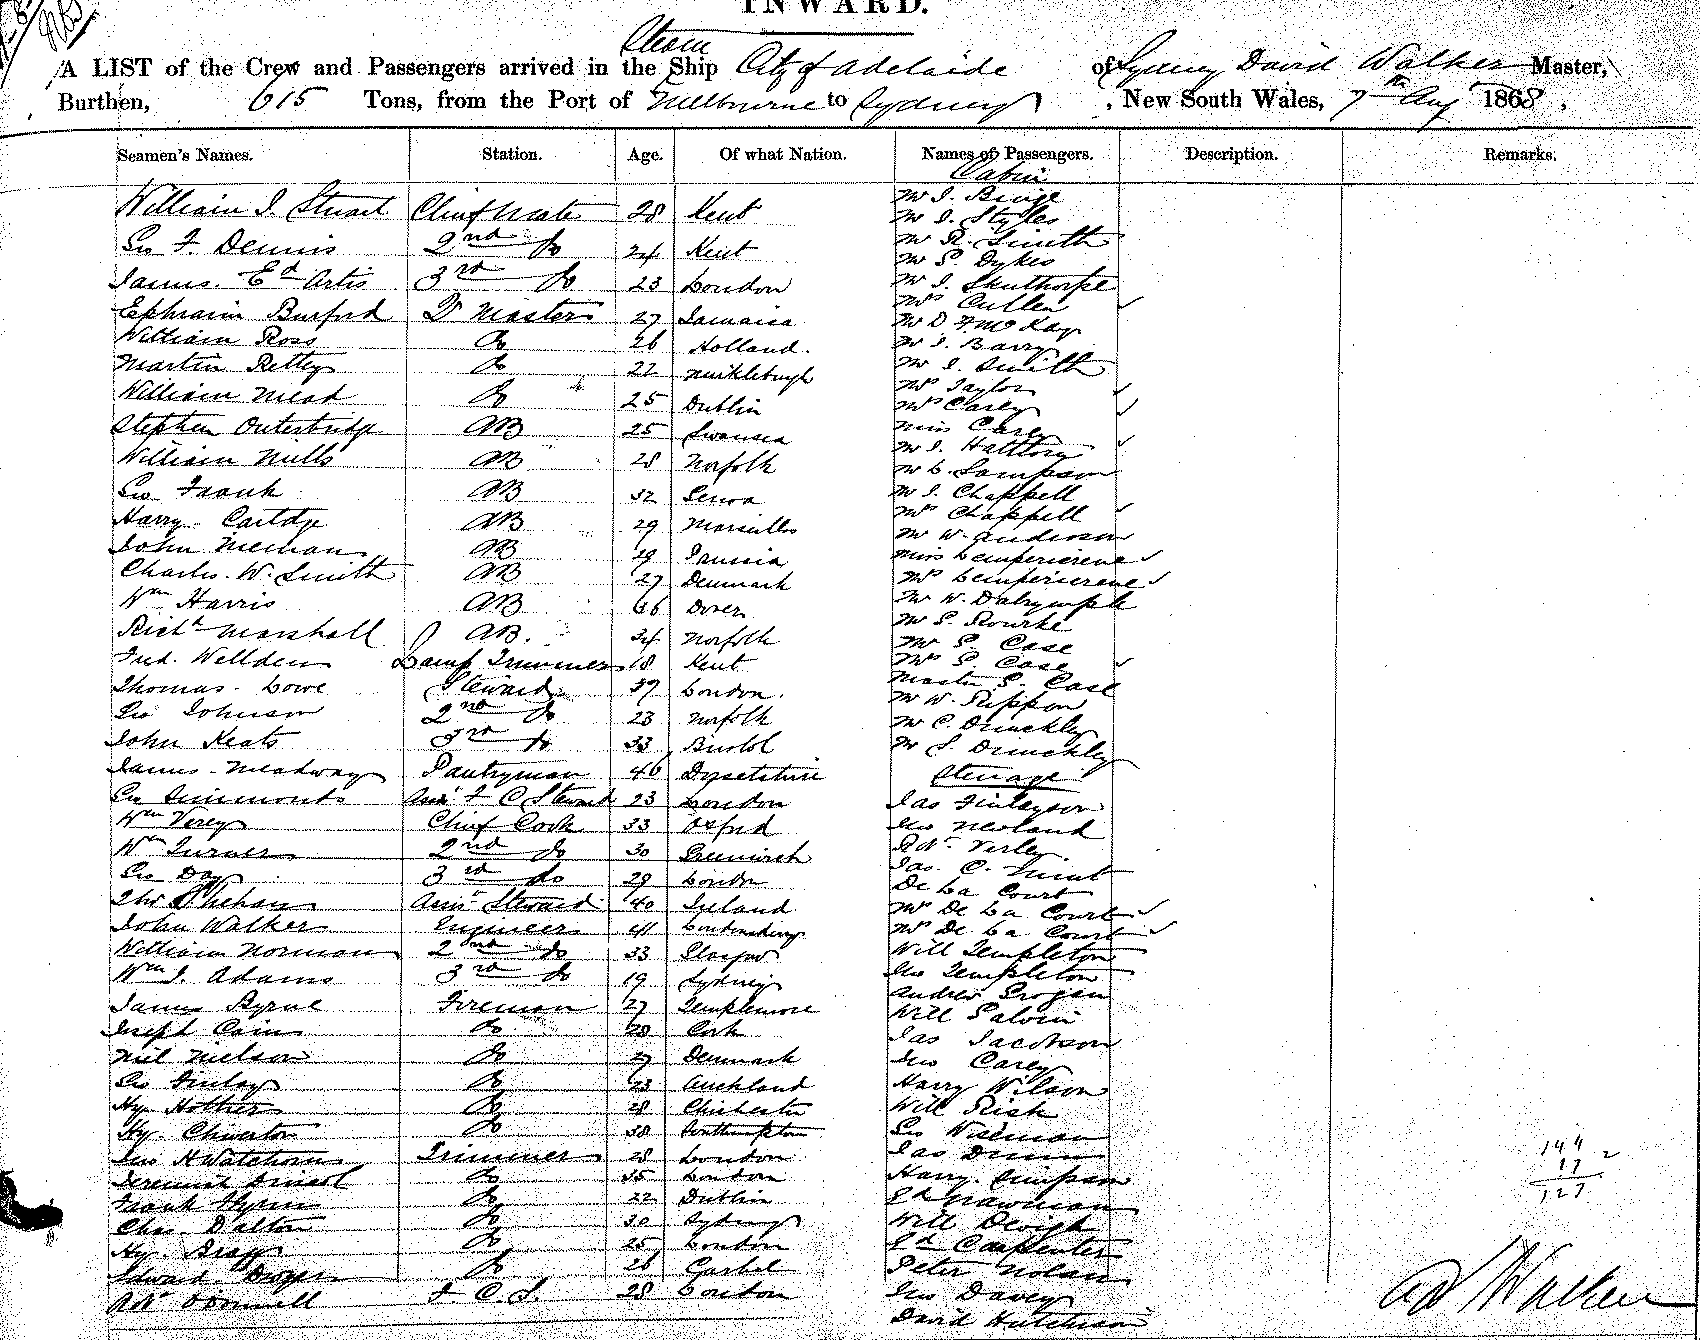 INWARD.
Steam
A LIST of the Crew and Passengers arrived in the Ship City of Adelaide of Sydney David Walker Master,
Burthen, 615 Tons, from the Port of Melbourne to Sydney, New South Wales, 7th Aug 1868,
Seamen's Names. Station. Age. Of what Nation. Names of Passengers. Description. Remarks.
Cabin
William J. Stuart Chief Mate 28 Kent
Geo F. Dennis 2nd Do 24 Kent
James Ed Artis 3rd Do 23 London
Ephraim Burford Qr Masters 27 Jamaica
William Ross Do 26 Holland.
Martin Do 22
William Mead Do 25 Dublin
Stephen Outerbridge AB 25 Swansea
William Mills AB 28 Norfolk
Geo Frank AB 32 Genoa
Harry AB 29 Marseilles
John AB 29 Prussia
Charles. W. Smith AB 27 Denmark
Wm Harris AB Dover
Richd Marshall AB. 24 Norfolk
Fred. Wellden Lamp Trimmer 18 Kent
Thomas Lowe Steward 37 London.
Geo Johnson 2nd Do 23 Norfolk
John Keats 3rd Do 33 Bristol
James Meadway Pantryman 46 Dorsetshire
Geo Simmonds F C Steward 23 London
Wm Verey Chief Cook 33 Oxford
Wm Turner 2nd Do 30 Greenwich
Geo Day 3rd Do 29 London
Steward 40 Ireland
John Walker Engineer 41
William Norman 2nd Do 33 Glasgow
Wm J. Adams 3rd Do 19 Sydney
James Byrne Fireman 27 Templemore
Joseph Cain Do 28 Cork
Neil Nielson Do 27 Denmark
Geo Finlay Do 23 Auckland
Hy Do 28 Chichester
Hy. Do 38 Southampton
Trimmer 28 London
Do 35 London
Frank Do 22 Dublin
Chas Dalton Do 30 Sydney
Hy. Bragg Do 25 London
Edward Dwyer Do 26
Robt O'Donnell F. C. S. 28 London
Mr J.
Mr J. Styles
Mr R. Smith
Mr S. Dykes
Mr J. Skuthorpe
Mrs Cullen
Mr D F. McKay
Mr J. Barry
Mr J. Smith
Mrs Taylor
Mrs Carey
Miss Carey
Mr J.
Mr C. Sampson
Mr J. Chappell
Mrs Chappell
Mr W. Anderson
Miss
Mrs
Mr W. Dalrymple
Mr S. Rourke
Mr S. Case
Mrs S. Case
Master S. Case
Mr W. Rippon
Mr C. Brinckley
Mr S. Brinckley
Steerage
Jas Finlayson
Jno Newland
Robt Verley
Jas. C.
De La Court
Mrs De La Court
Mrs De La Court
Will Templeton
Jno Templeton
Andrew Grogan
Will Galvin
Jas Jackson
Jno Carey
Harry Wilson
Will Rish
Geo Wiseman
Jas Dunn
Harry. Simpson
Ed Nawman
Will
Ed Carpenter
Peter Nolan
Jno Davey
David Hutchison
144
17
127
D Walker